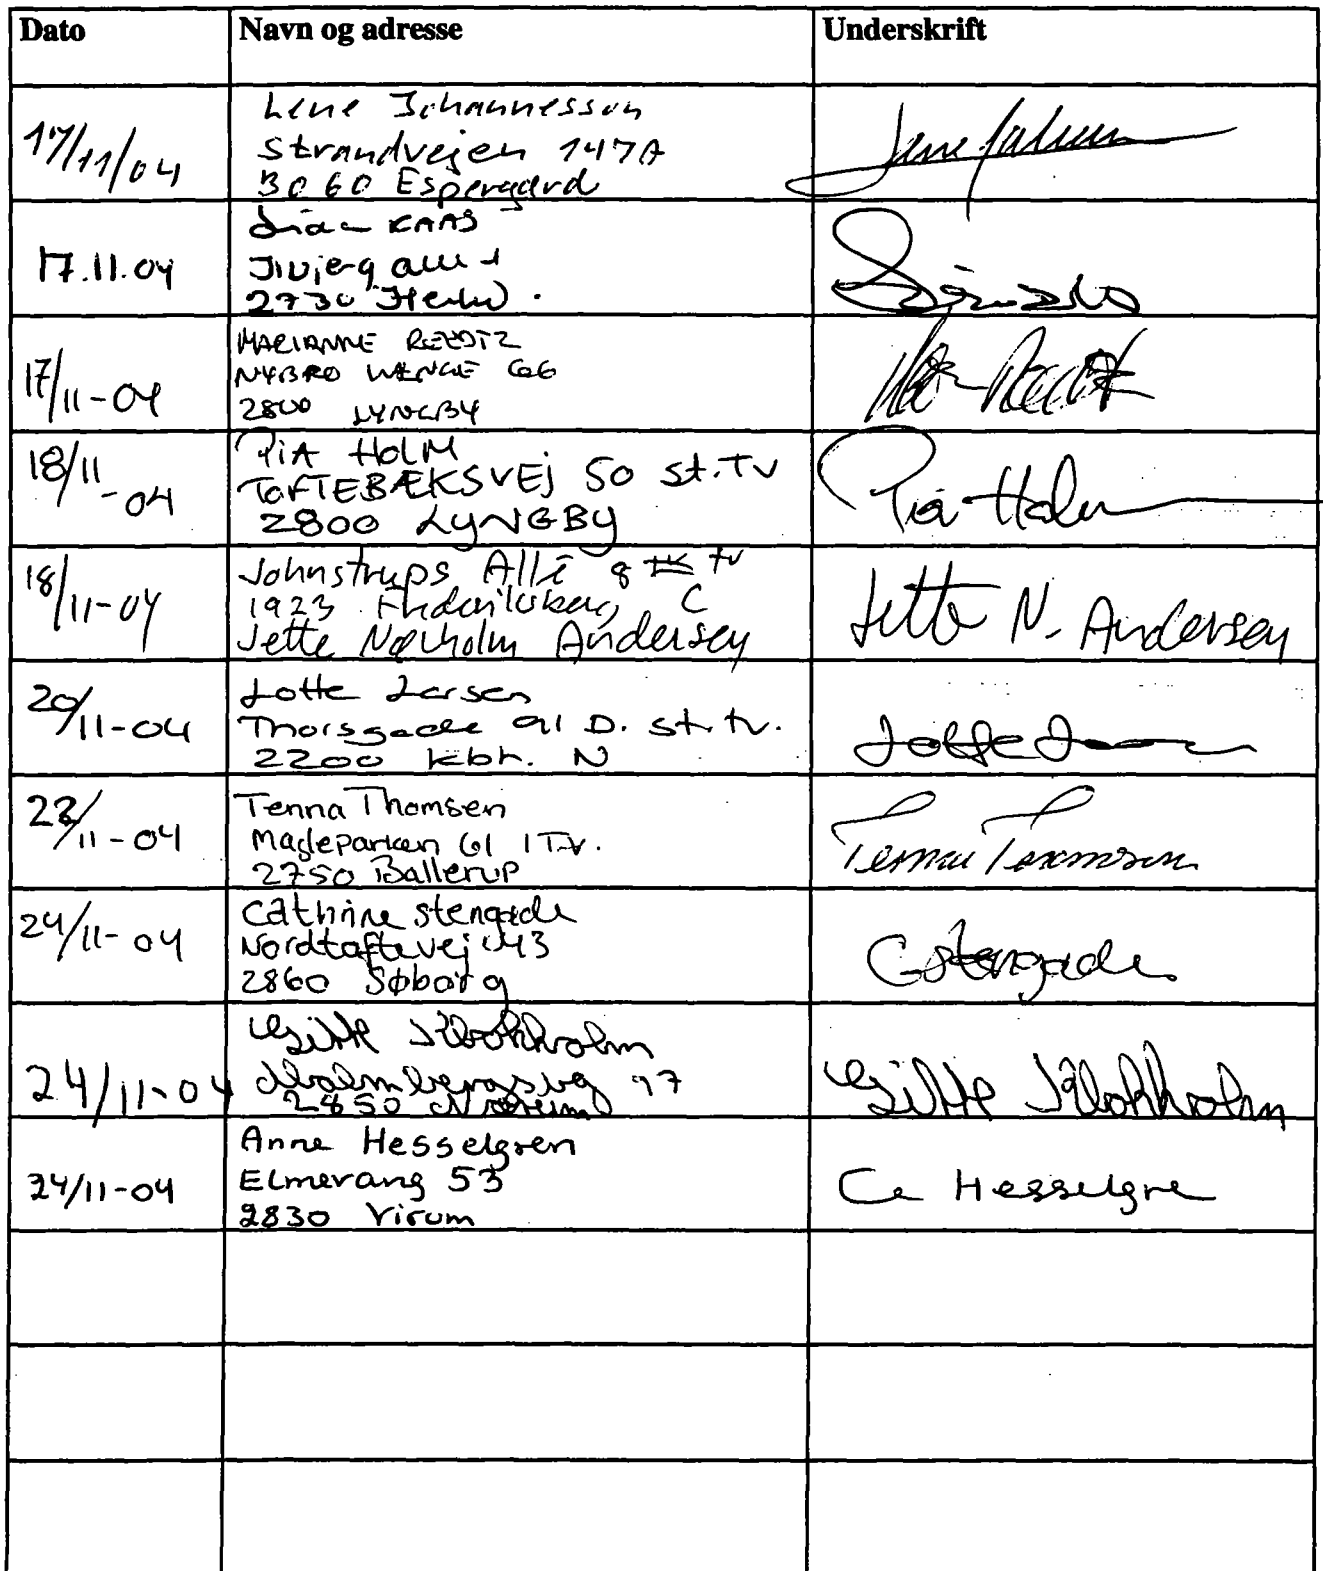 Dato Navn og adresse Underskrift
17/11/04
Lene Johannesson
Strandvejen 147A
3060 Espergærd
17.11.04
KAAS
2730 Herlev.
17/11-04
MARIANNE REEDTZ
NYBRO VÆNGE 66
2800 LYNGBY
18/11-04
PIA HOLM
TOFTEBÆKSVEJ 50 st.TV
2800 LYNGBY
Pia Holm
18/11-04
Johnstrups Allé 8 tv
1923 Frederiksberg C
Jette Nørholm Andersen
Jette N. Andersen
20/11-04
Lotte Larsen
Thorsgade 91 D. st. tv.
2200 Kbh. N
Lotte
23/11-04
Tenna Thomsen
Magleparken 61 1 TV.
2750 Ballerup
Tenna Thomsen
24/11-04
Cathrine Stengade
Nordtoftevej 43
2860 Søborg
C Stengade
24/11-04
Gitte Klokholm
Malmbergsvej 97
2850 Nærum
Gitte Klokholm
24/11-04
Anne Hesselgren
Elmevang 53
2830 Virum
Hesselgre